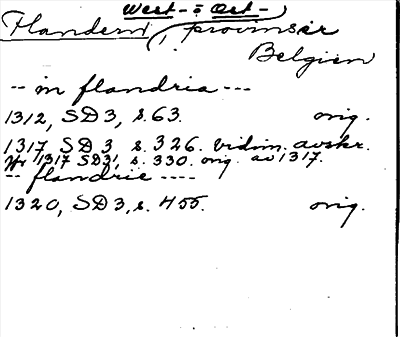 West- = Öst-
Flandern, provinser
Belgien
-- in flandria ---
1312, SD3, s. 63. orig.
1317 SD 3 s. 326. vidim. avskr.
1317 SD3, s. 330. orig. av 1317.
-- flandrie ----
1320, SD3, s. 455. orig.